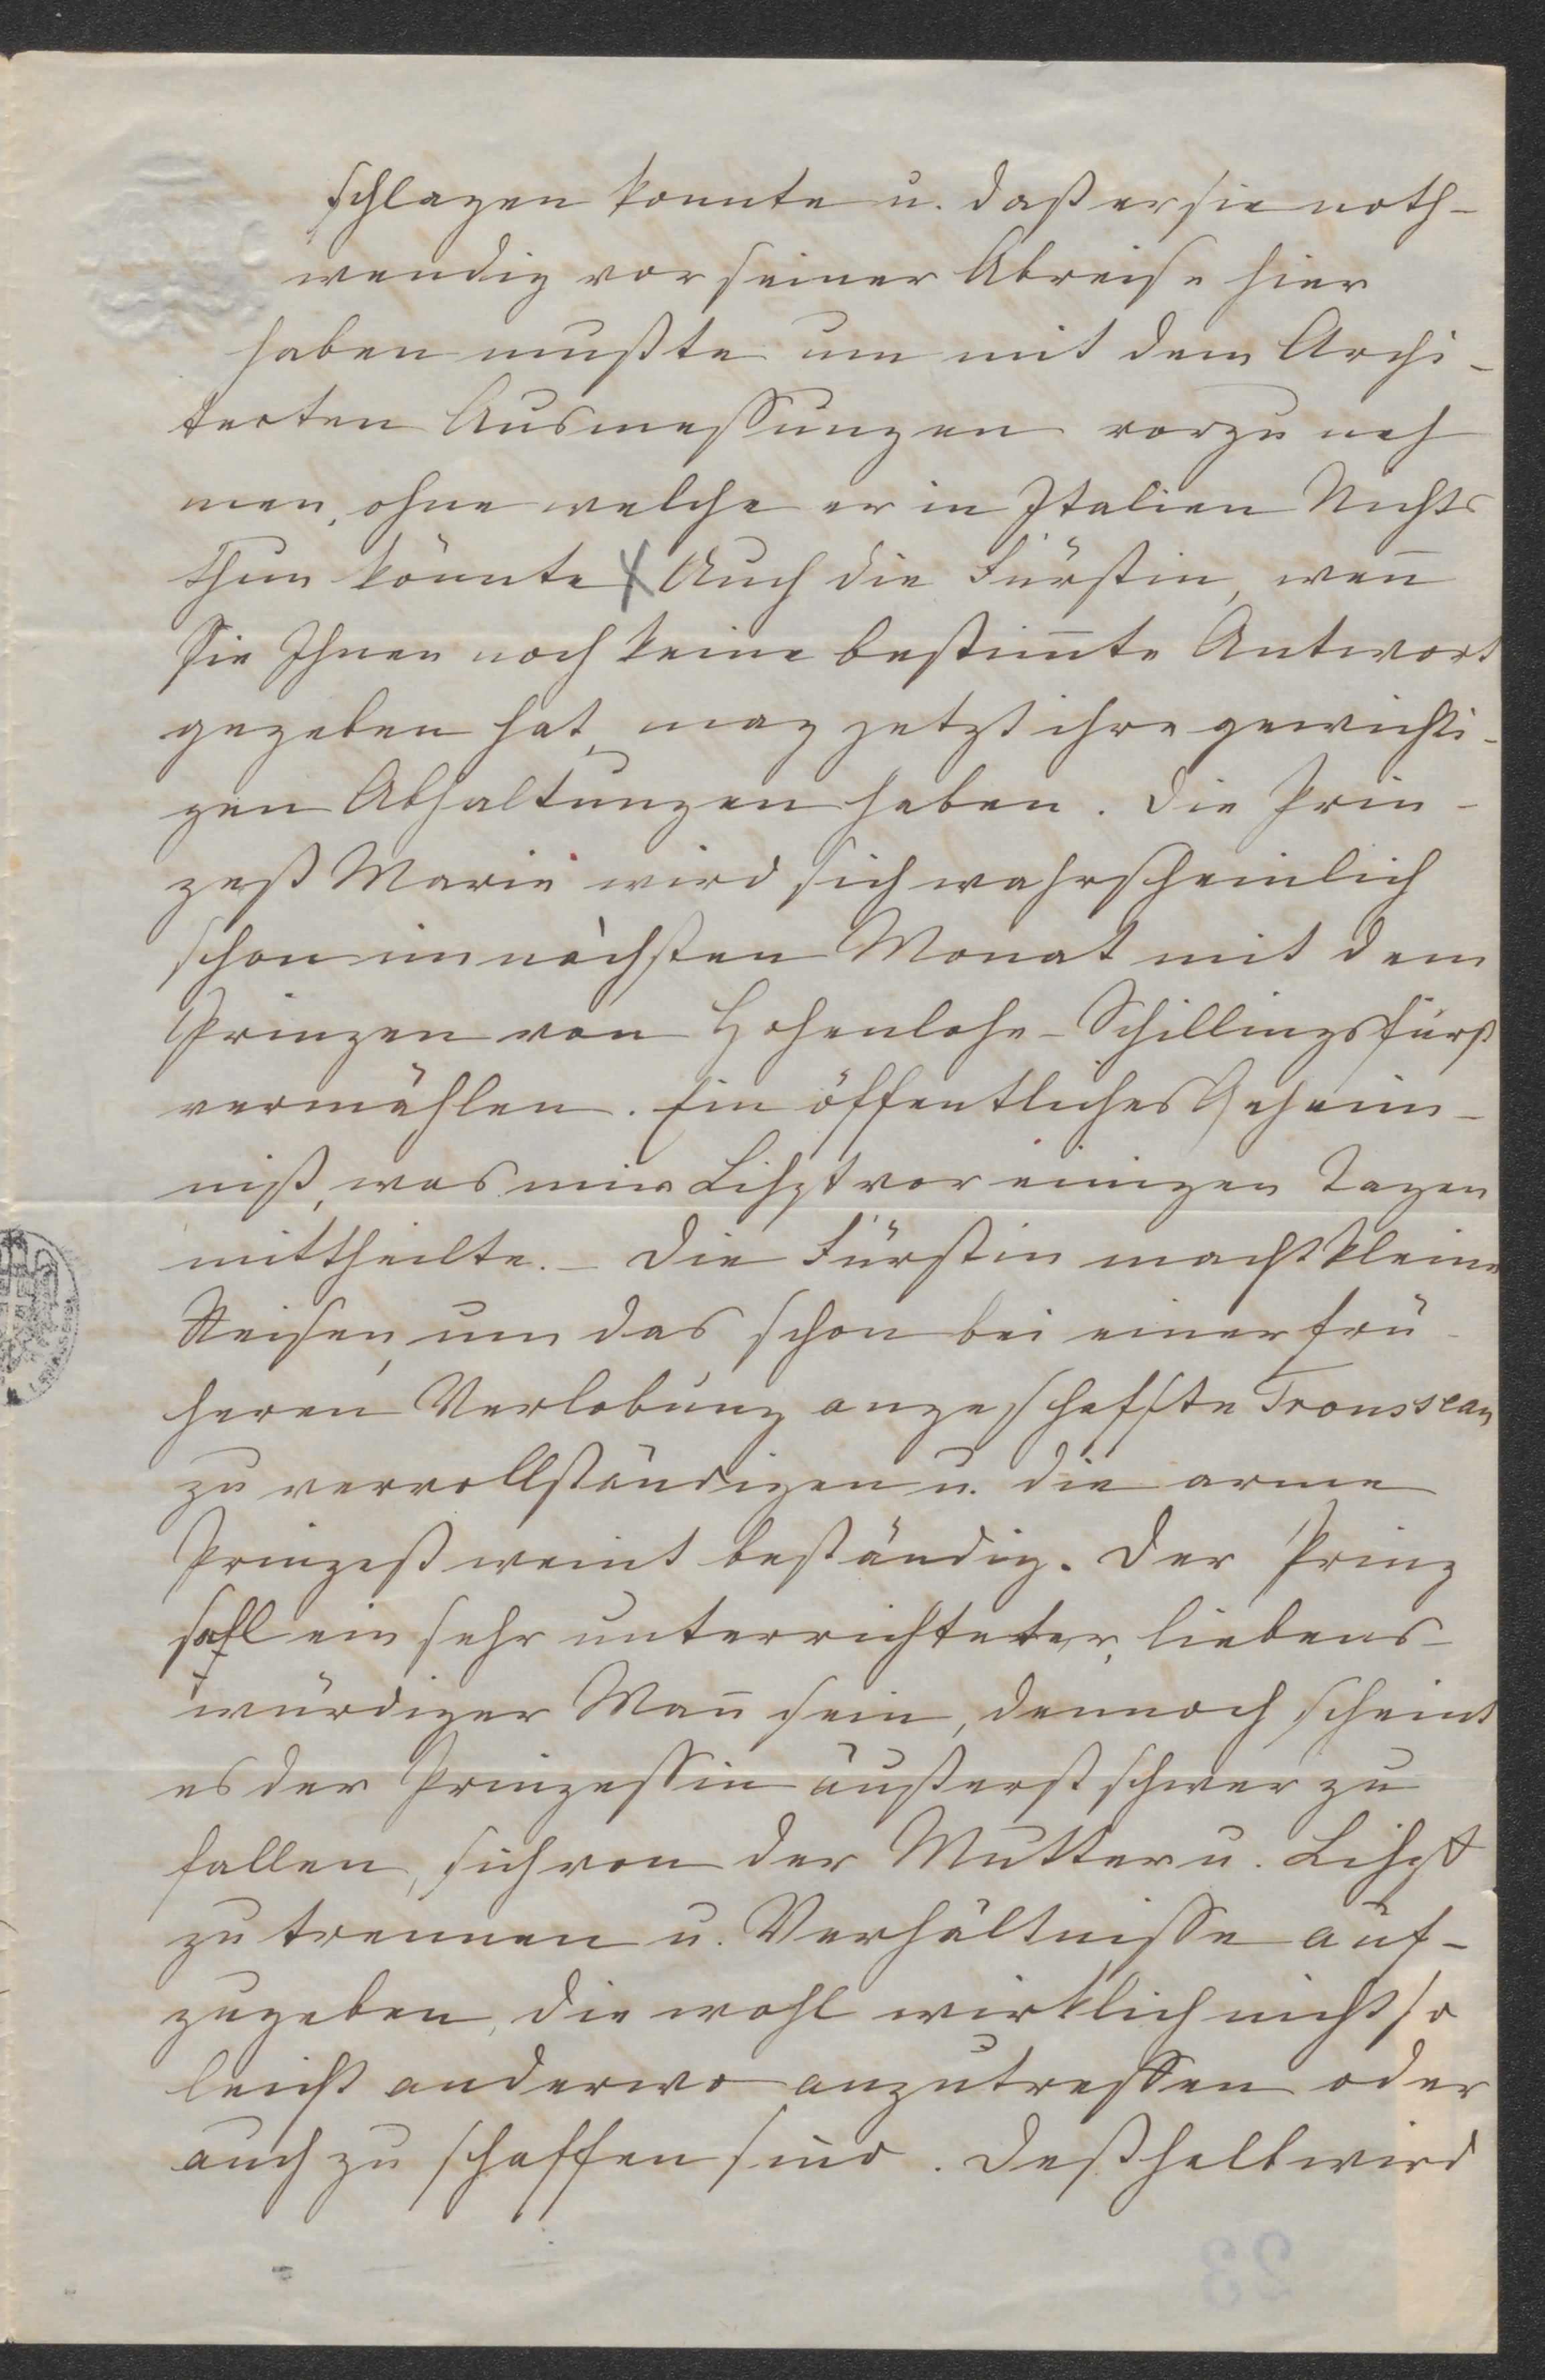 schlagen konnte u. daß er sie noth-
wendig vor seiner Abreise hier
haben mußte um mit dem Archi-
tecten Ausmessungen vorzuneh
men, ohne welche er in Italien Nichts
thun könnte Auch die Fürstin, wen̄
Sie Ihnen noch keine bestim̄te Antwort
gegeben hat, mag jetzt ihre gewichti-
gen Abhaltungen haben. Die Prin-
zeß Marie wird sich wahrscheinlich
schon im nächsten Monat mit dem
Prinzen von Hohenlohe-Schillingsfürst
vermählen. Ein öffentliches Geheim-
niß, was mir Lißzt vor einigen Tagen
mittheilte. – Die Fürstin macht kleine
Reisen, um das schon bei einer frü-
heren Verlobung angeschaffte Trousseau
zu vervollständigen u. die arme
Prinzeß weint beständig. Der Prinz
soll ein sehr unterrichteter, liebens-
würdiger Man̄ sein, dennoch scheint
es der Prinzessin äußerst schwer zu
fallen, sich von der Mutter u. Lißzt
zu trennen u. Verhältnisse auf-
zugeben, die wohl wirklich nicht so
leicht anderwo anzutreffen oder
auch zu schaffen sind. Deßhalb wird